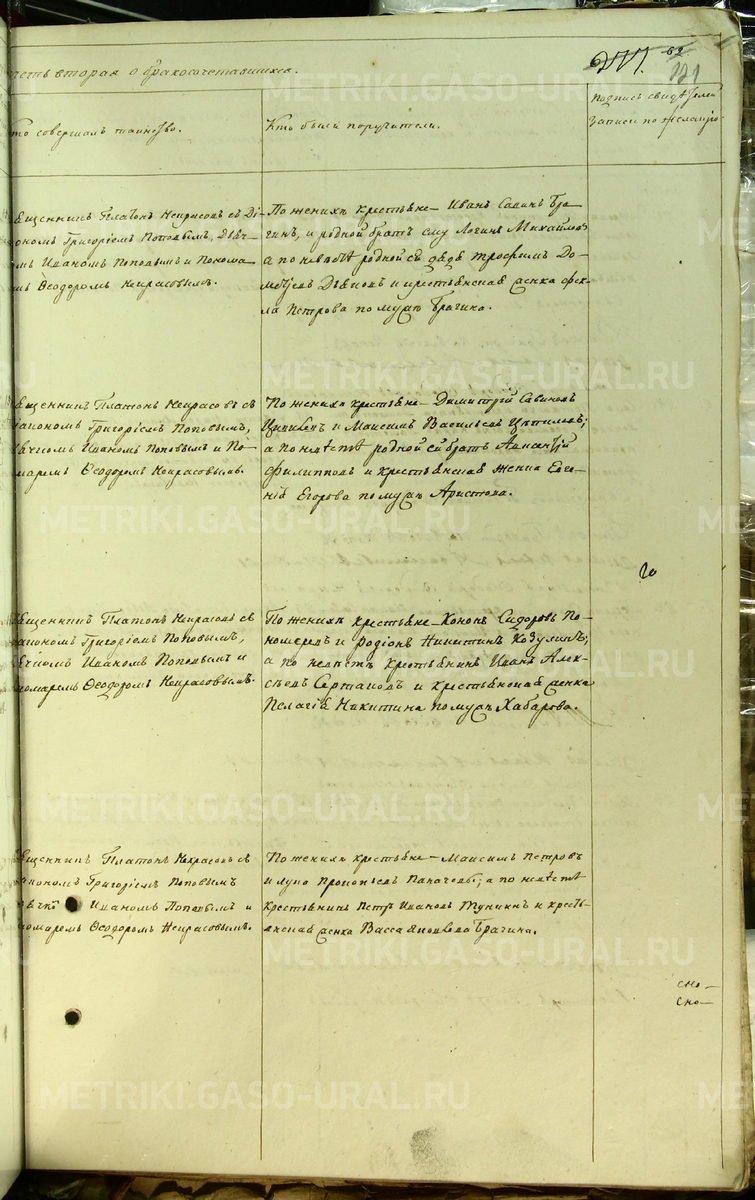 часть вторая о бракосочетавшихся.
62
121
Кто совершалъ таинство.
Кто были поручители.
Подпись свидѣтелей
записи по желанію
Священникъ Платонъ Некрасовъ съ Ді-
акономъ Григоріемъ Поповымъ, Дьяч-
комъ Иваномъ Поповымъ и Понома-
ремъ Ѳеодоромъ Некрасовымъ.
По женихѣ крестьяне – Иванъ Савинъ Бра-
гинъ, и родной братъ ему Логинъ Михайловъ
а по невѣстѣ родной ей дядя Трофимъ До-
и крестьянская женка Ѳек-
ла Петрова по мужѣ Брагина.
Священникъ Платонъ Некрасовъ съ
Діакономъ Григоріемъ Поповымъ,
Дьячкомъ Иваномъ Поповымъ и По-
номаремъ Ѳеодоромъ Некрасовымъ.
По женихѣ крестьяне – Димитрій Савиновъ
и Максимъ Васильевъ
а по невѣстѣ родной ей братъ
Филипповъ и крестьянская женка Евге-
нія Егорова по мужѣ Аристова.
Священникъ Платонъ Некрасовъ съ
Діакономъ Григоріемъ Поповымъ,
Дьячкомъ Иваномъ Поповымъ и
Пономаремъ Ѳеодоромъ Некрасовымъ.
По женихѣ крестьяне – Кононъ Сидоровъ По-
номаревъ и Родіонъ Никитинъ Козулинъ;
а по невѣстѣ крестьянинъ Иванъ Алек-
сѣевъ и крестьянская женка
Пелагія Никитина по мужѣ Хабарова.
Священникъ Платонъ Некрасовъ съ
Діакономъ Григоріемъ Поповымъ
Дьячк Иваномъ Поповымъ и
Пономаремъ Ѳеодоромъ Некрасовымъ.
По женихѣ крестьяне – Максимъ Петровъ
и Лупа Прокопьевъ Пакачевы; а по невѣстѣ
крестьянинъ Петръ Ивановъ Тункинъ и кресть-
янская женка Васса Яковлева Брагина.
METRIKI.GASO-URAL.RU